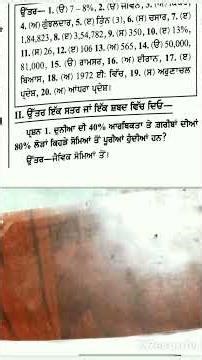 ਉੱਤਰ— 1. (ੳ) 7 – 8%, 2. (ੳ) ਜੀਵਨ, 3.
4. (ਅ) ਗੁੰਝਲਦਾਰ, 5. (ੲ) ਤਿੰਨ (3), 6. (ਸ) ਚਸਾਰ, 7. (ੲ)
1,84,823, 8. (ੲ) 3,54,782, 9. (ਸ) 350, 10. (ੲ) 13%,
11. (ਸ) 26, 12. (ੲ) 106 13. (ਅ) 565, 14. (ੳ) 50,000,
81,000, 15. (ੳ) ਰਾਮਸਰ, 16. (ਅ) ਈਰਾਨ, 17. (ੲ)
ਬਿਆਸ, 18. (ਅ) 1972 ਈ: ਵਿੱਚ, 19. (ਸ) ਅਰੁਣਾਚਲ
ਪ੍ਰਦੇਸ਼, 20. (ਅ) ਆਂਧਰਾ ਪ੍ਰਦੇਸ਼।
II. ਉੱਤਰ ਇੱਕ ਸਤਰ ਜਾਂ ਇੱਕ ਸ਼ਬਦ ਵਿੱਚ ਦਿਓ—
ਪ੍ਰਸ਼ਨ 1. ਦੁਨੀਆ ਦੀ 40% ਆਰਥਿਕਤਾ ਤੇ ਗ਼ਰੀਬਾਂ ਦੀਆਂ
80% ਲੋੜਾਂ ਕਿਹੜੇ ਸੋਮਿਆਂ ਤੋਂ ਪੂਰੀਆਂ ਹੁੰਦੀਆਂ ਹਨ?
ਉੱਤਰ—ਜੈਵਿਕ ਸੋਮਿਆਂ ਤੋਂ।